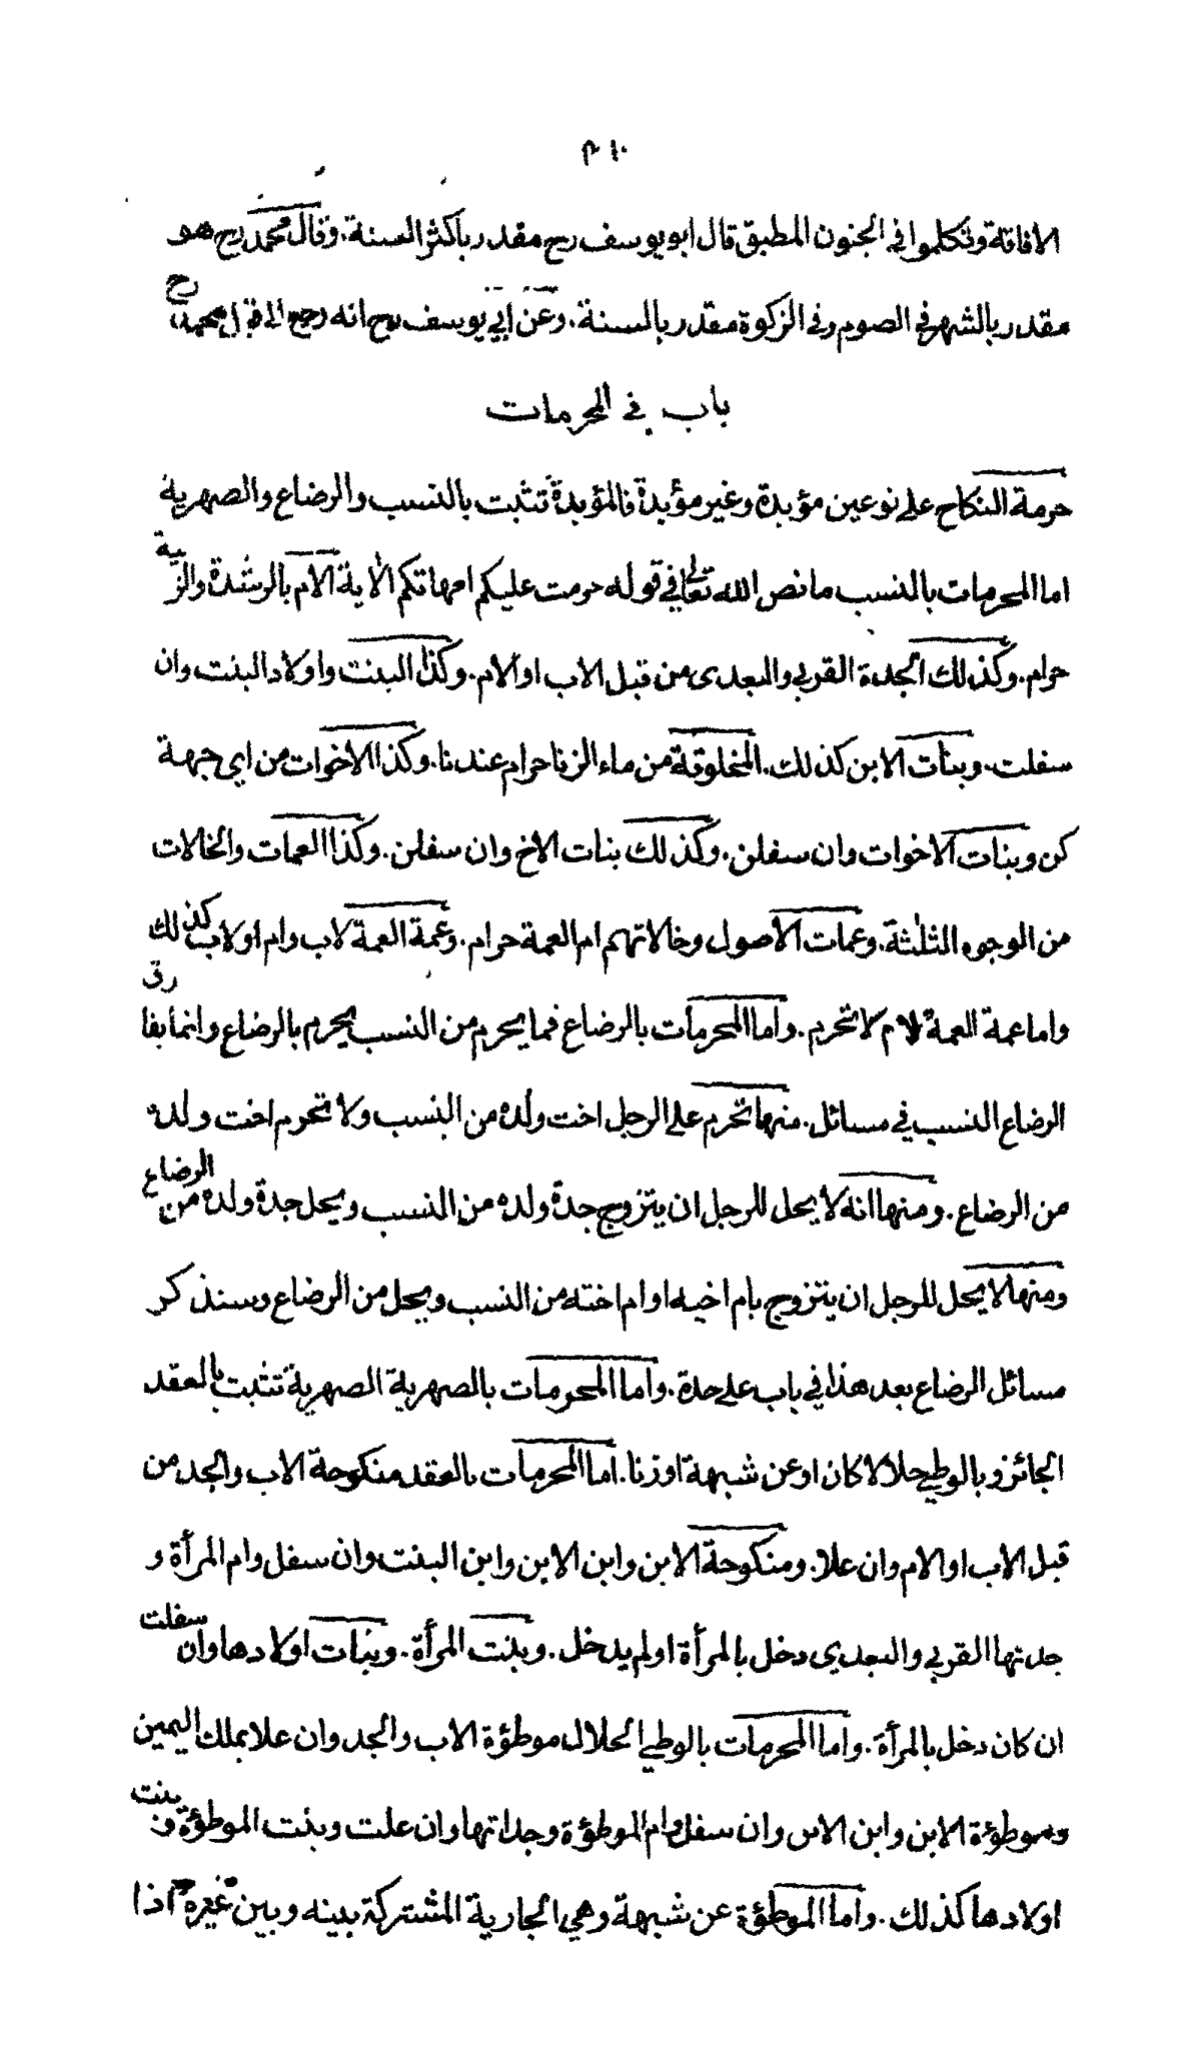 الافاقة وتكلموا في الجنون المطبق قال ابو يوسف رح مقدر باكثر السنة. وقال محمد رح هو
مقدر بالشهر في الصوم وفي الزكوة مقدر بالسنة. وعن ابي يوسف رح انه رجع الى قول محمد رح
باب في المحرمات
حرمة النكاح على نوعين مؤبدة وغير مؤبدة فالمؤبدة تثبت بالنسب والرضاع والصهرية
اما المحرمات بالنسب ما نص الله تعالى في قوله حرمت عليكم امهاتكم الاية الام بالرشدة والزنية
حرام. وكذلك الجدة القربى والبعدى من قبل الاب او الام. وكذا البنت واولاد البنت وان
سفلت. وبنات الابن كذلك. المخلوقة من ماء الزنا حرام عندنا. وكذا الاخوات من اي جهة
كن وبنات الاخوات وان سفلن. وكذلك بنات الاخ وان سفلن. وكذا العمات والخالات
من الوجوه الثلثة. وعمات الاصول وخالاتهم ام العمة حرام. وعمة العمة لاب وام او لاب كذلك
واما عمة العمة لام لا تحرم. واما المحرمات بالرضاع فما يحرم من النسب يحرم بالرضاع وانما يفارق
الرضاع النسب في مسائل. منها تحرم على الرجل اخت ولده من النسب ولا تحرم اخت ولده
من الرضاع. ومنها انه لا يحل للرجل ان يتزوج جدة ولده من النسب ويحل جدة ولده من الرضاع
ومنها لا يحل للرجل ان يتزوج بام اخيه او ام اخته من النسب ويحل من الرضاع وسنذكر
مسائل الرضاع بعد هذا في باب على حدة. واما المحرمات بالصهرية الصهرية تثبت بالعقد
الجائز وبالوطي حلالا كان او عن شبهة او زنا. اما المحرمات بالعقد منكوحة الاب والجد من
قبل الاب او الام وان علا. ومنكوحة الابن وابن الابن وابن البنت وان سفل وام المرأة و
جدتها القربى والبعدى دخل بالمرأة او لم يدخل. وبنت المرأة. وبنات اولادها وان سفلت
ان كان دخل بالمرأة. واما المحرمات بالوطي الحلال موطؤة الاب والجد وان علا بملك اليمين
وموطؤة الابن وابن الابن وان سفل وام الموطؤة وجداتها وان علت وبنت الموطؤة وبنت
اولادها كذلك. واما الموطؤة عن شبهة وهي الجارية المشتركة بينه وبين غيره اذا